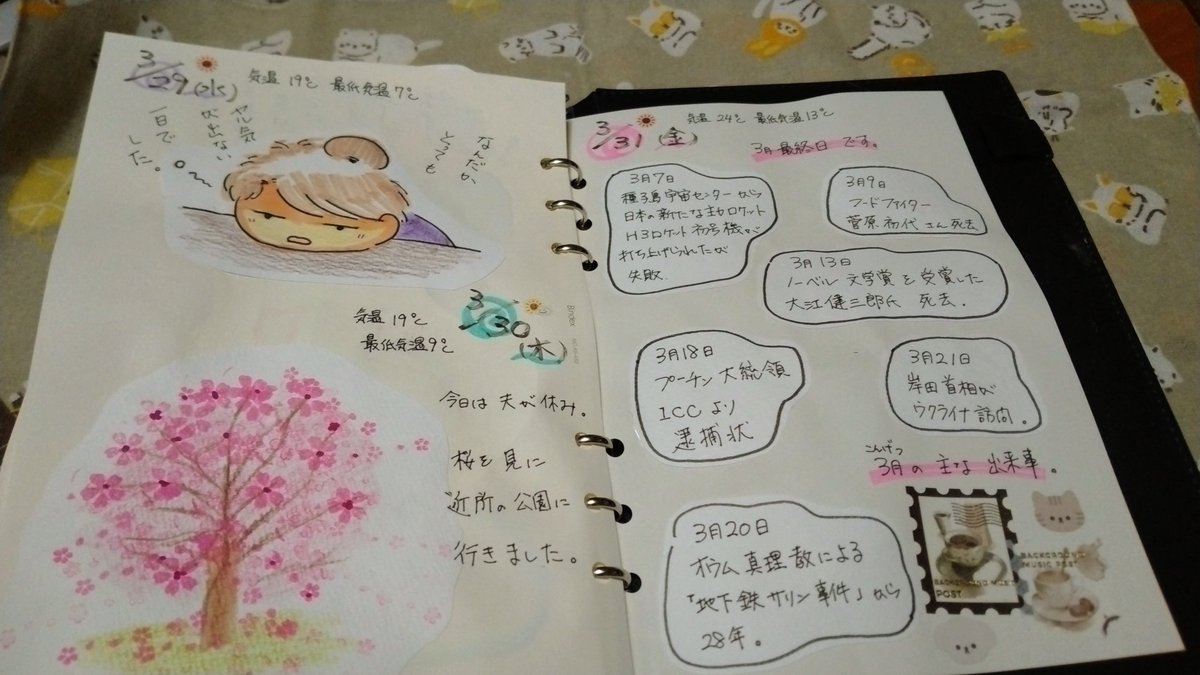 3/29(水)
気温 19℃ 最低気温7℃
なんだか
とっても
ヤル気
が出ない
一日で
した。
3/30
(木)
気温 19℃
最低気温9℃
今日は 夫が休み。
桜を見に
近所の公園に
行きました。
Bindex
3/31(金)
気温 24℃ 最低気温13℃
3月最終日です。
3月7日
種子島宇宙センターから
日本の新たな主力ロケット
H3ロケット初号機が
打ち上げられたが
失敗。
3月9日
フードファイター
菅原初代さん死去
3月13日
ノーベル文学賞を受賞した
大江健三郎氏 死去.
3月18日
プーチン大統領
ICCより
逮捕状
3月21日
岸田首相が
ウクライナ訪問。
こんげつ
3月の主な出来事。
3月20日
オウム真理教による
「地下鉄サリン事件」から
28年。
BACKGROUND MUSIC
POST
BACKGROUND
MUSIC POST